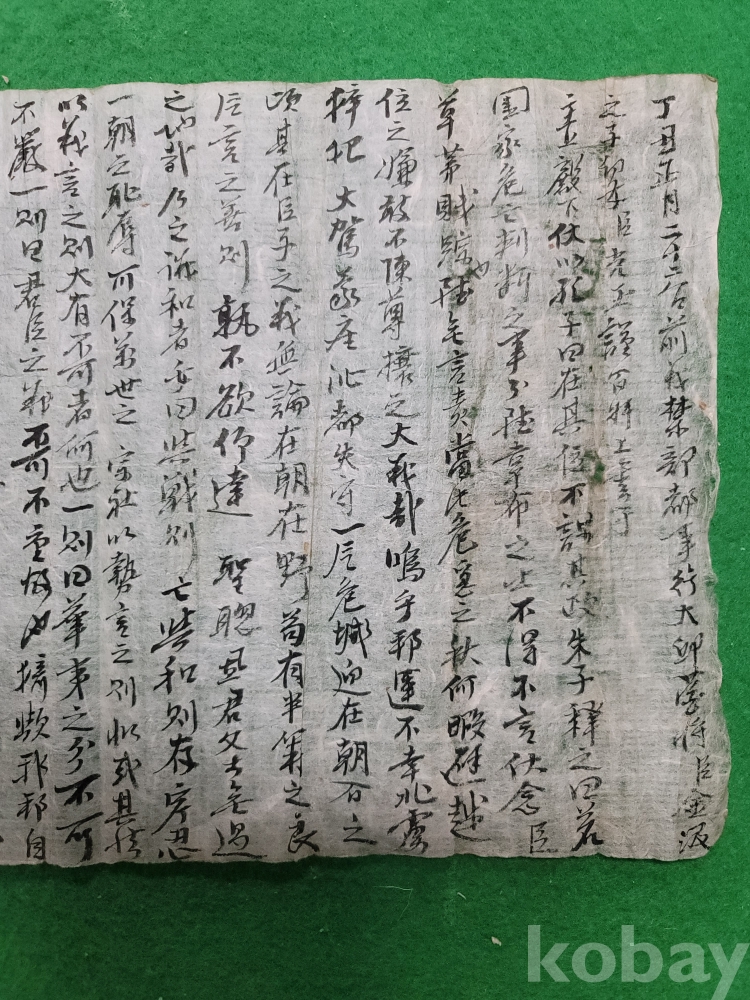 丁丑正月二十二日前義禁部都事行大邱營將臣金汲
之子幼學臣克玉謹百拜上書于
主上殿下伏以孔子曰不在其位不謀其政朱子釋之曰若
國家危亡判於之事分陸韋布之士不得不言伏念臣
草茅賤踪也無言責當此危急之秋何暇避越
位之嫌敢不陳尊攘之大義哉嗚乎邦運不幸北虜
猝犯 大駕蒙塵沁都失守一片危城迫在朝夕之
頃其在臣子之義無論在朝在野苟有半籌之良
片言之善則孰不欲仰達 聖聰思君父無過
之地哉今之議和者每曰與戰則亡與和則存寧忍
一朝之恥辱可保萬世之 宗社以勢言之則似或其然
以義言之則大有不可者何也一則曰華夷之分不可
不嚴一則曰君臣之義不可不重
kobay